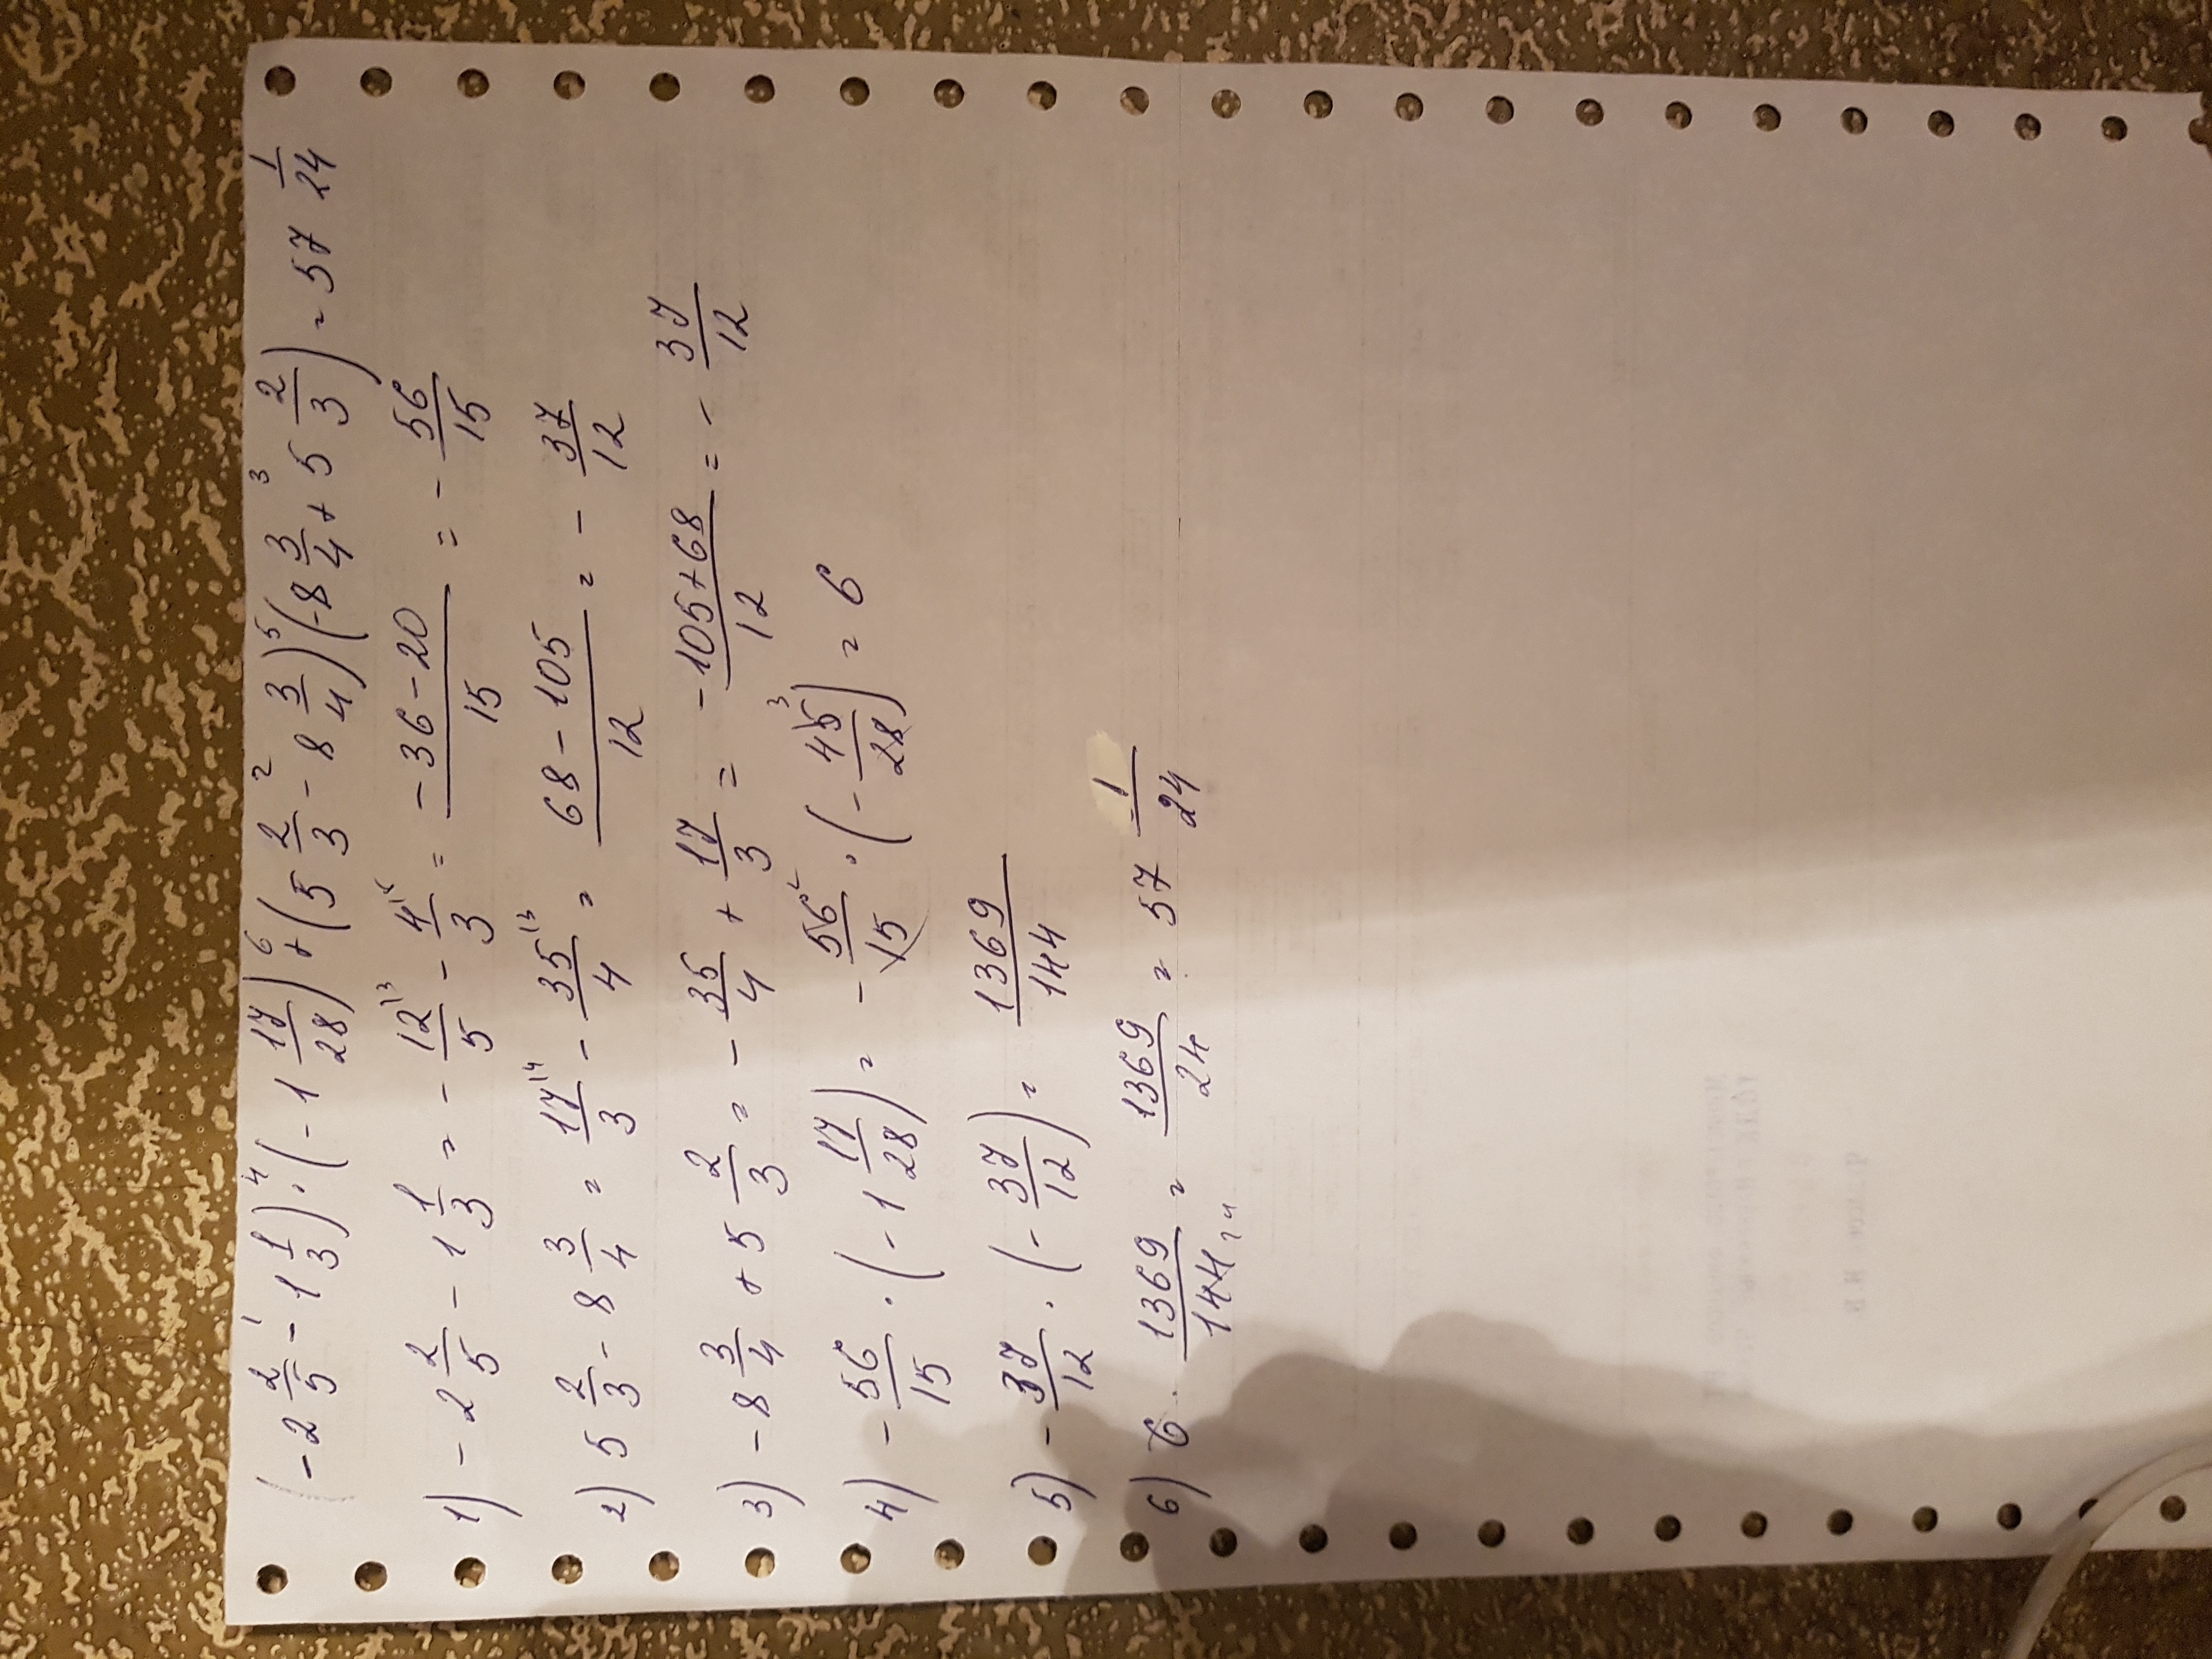 (-2 2/5 -¹ 1 1/3) ·⁴ (-1 17/28) +⁶ (5 2/3 -² 8 3/4)⁵(-8 3/4 +³ 5 2/3) = 57 1/24
1) -2 2/5 - 1 1/3 = - 12/5 - 4/3 = (-36-20)/15 = - 56/15
2) 5 2/3 - 8 3/4 = 17/3 - 35/4 = (68-105)/12 = - 37/12
3) -8 3/4 + 5 2/3 = - 35/4 + 17/3 = (-105+68)/12 = - 37/12
4) - 56/15 · (-1 17/28) = - 56/15 · (- 45/28) = 6
5) - 37/12 · (- 37/12) = 1369/144
6) 6 · 1369/144 = 1369/24 = 57 1/24